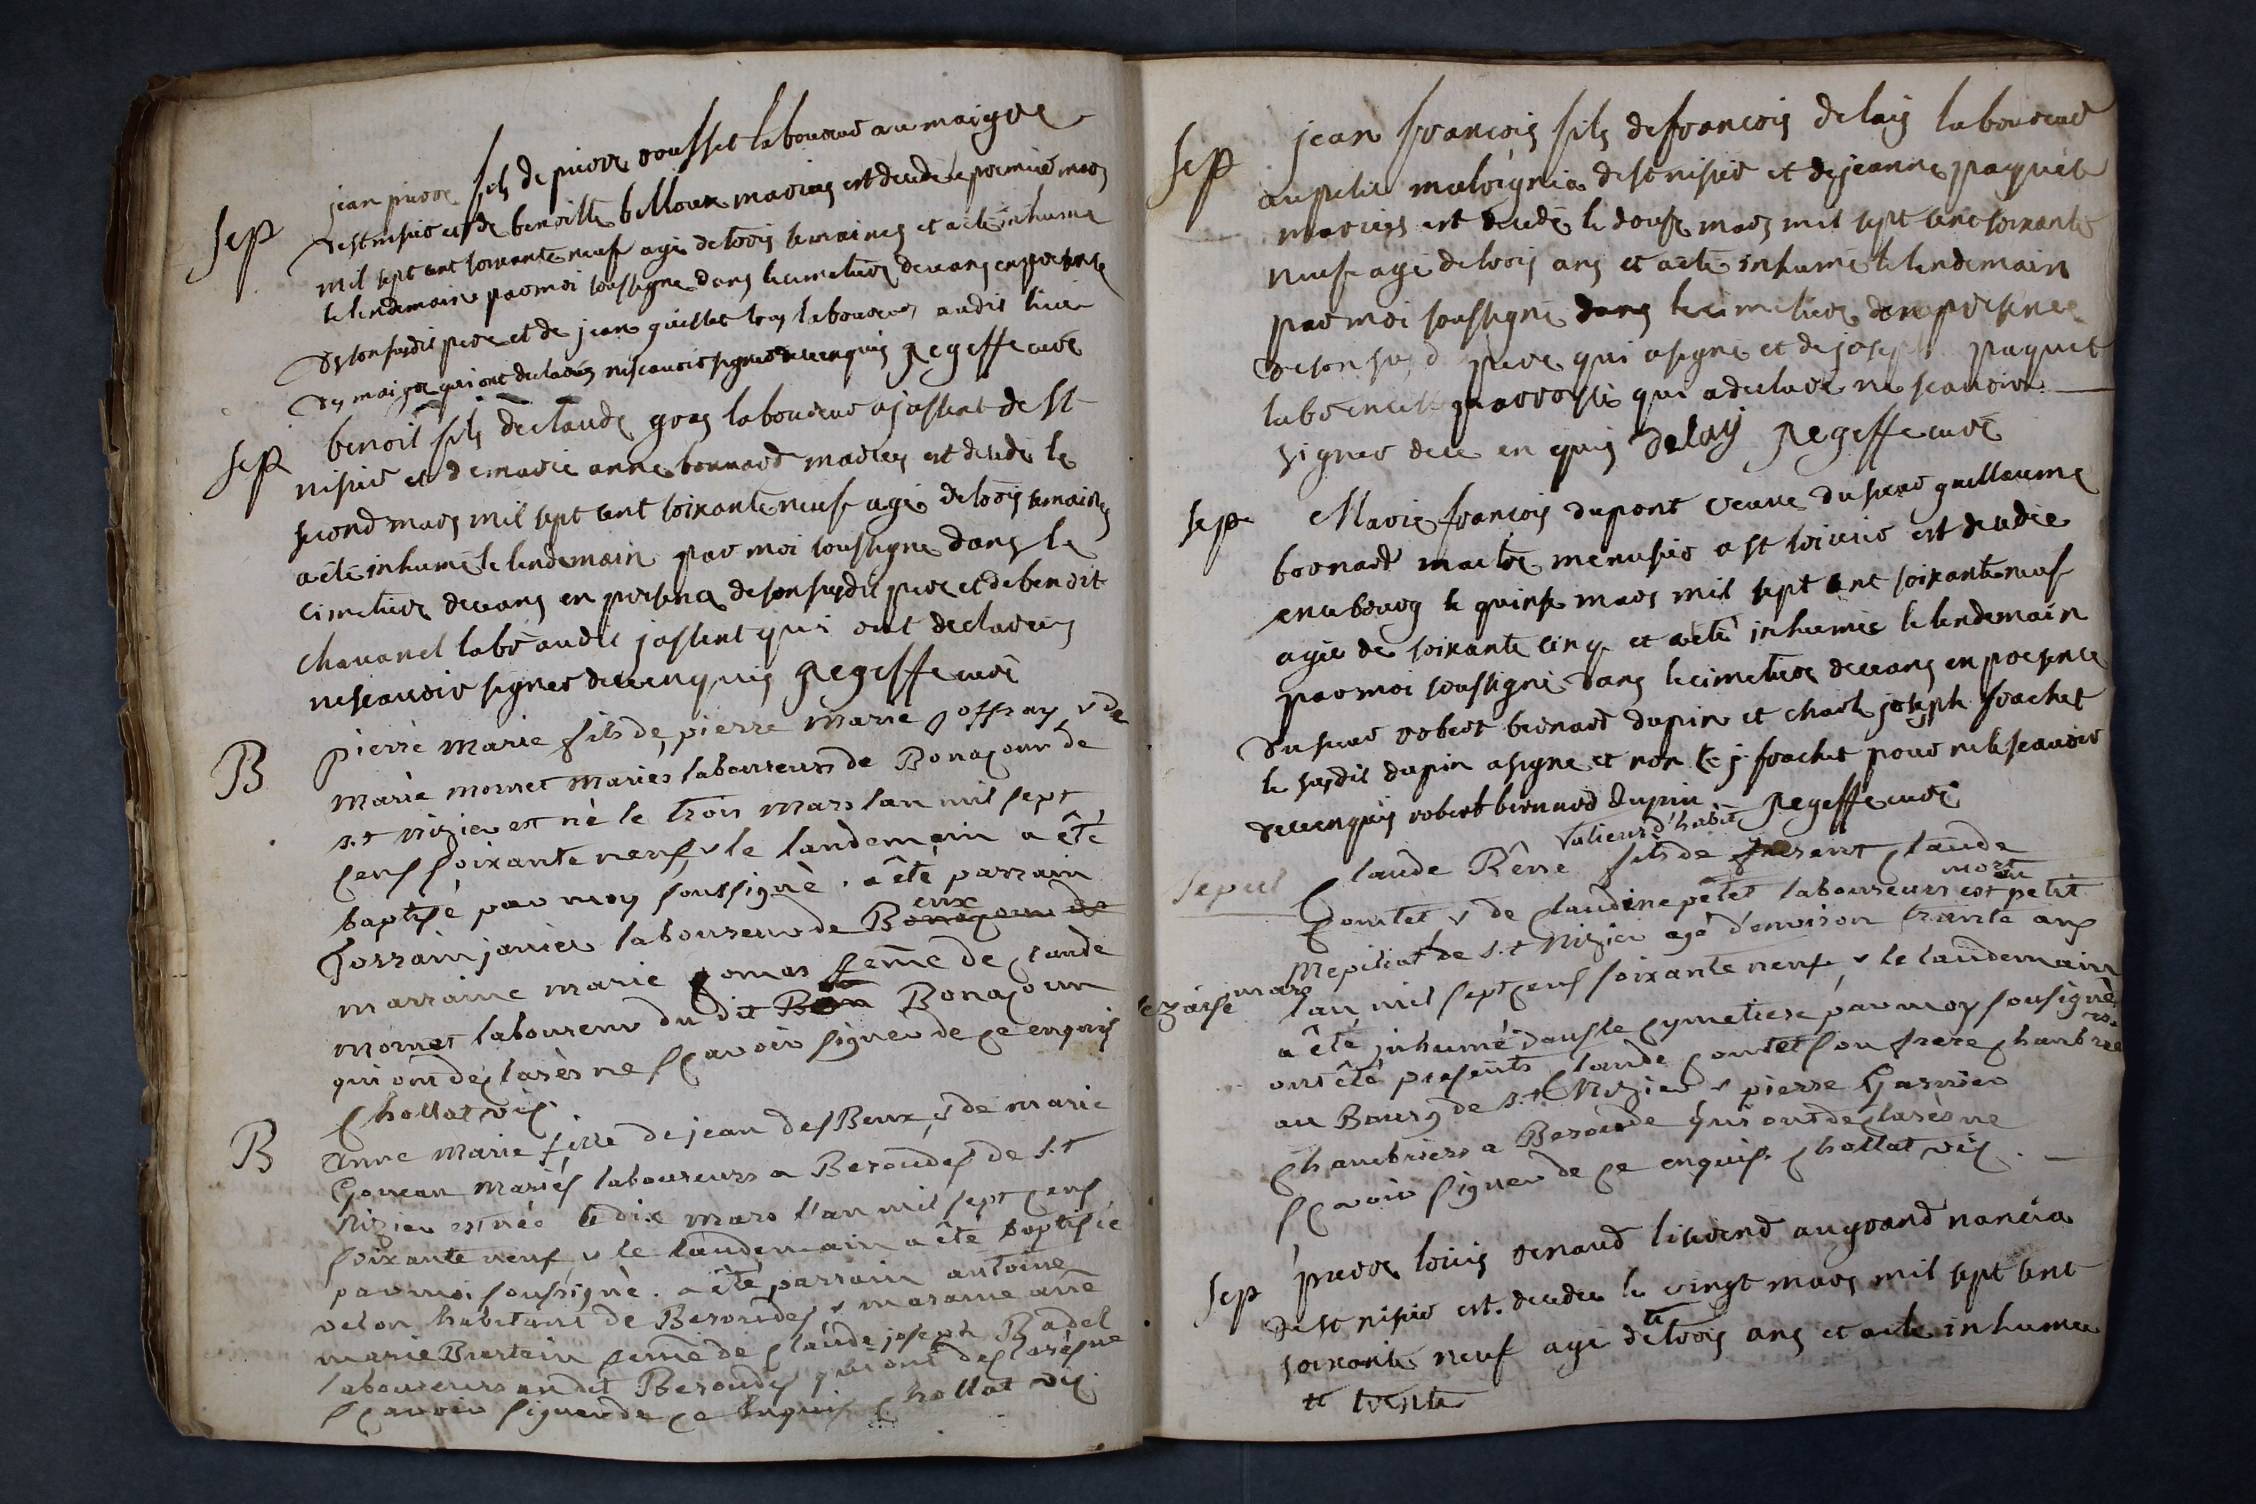 jean pierre fils de pierre rousset laboureur au maigre
Sep
de st nisier et de benoitte billoux mariés est decedé le premier mars
mil sept cent soixante neuf agé de trois semaines et a eté inhumé
le lendemain par moi soussigné dans le cimetiere de ceans en presence
de son susdit pere et de jean guillet tous laboureurs audit lieu
de maigre qui ont declarés ne scavoir signer de ce enquis Regeffe curé
Sep
benoit fils de claude gras laboureur a jossent de st
nisier et de marie anne bonnard mariés est decedé le
second mars mil sept cent soixante neuf agé de trois semaines
a eté inhumé le lendemain par moi soussigné dans le
cimetiere de ceans en presence de son susdit pere et de benoit
chavanel labr audit jossent qui ont declarés
ne scavoir signer de ce enquis Regeffe curé
B
pierre marie fils de pierre marie joffray & de
marie mornet mariés laboureurs de Bonajour de
s.t nizier est né le trois mars lan mil sept
cens soixante neuf & le landemain a êté
baptisé par moy soussigné. a êté parrain
Jorrain janier laboureur de Beux
marraine marie gomas feme de claude
mornet laboureur du dit Bonajour
qui ont declarés ne sçavoir signer de ce enquis
Chollat vic
B
Anne Marie fille de jean des Beux, & de marie
Gonean mariés laboureurs a Beroudes de s.t
Nizier est née le dix mars l'an mil sept cens
soixante neuf & le landemain a êté baptisée
par moi sousigné. a êté parrain antoine
velon habitant de Beroudes & maraine ane
marie Burtain feme de claude joseph Badel
laboureurs au dit Beroudes qui ont declarés ne
sçavoir signer de ce enquis Chollat vic
Sep
jean francois fils de francois delay laboureur
au petit malvignia de st nisier et de jeanne paquet
mariés est decedé le douse mars mil sept cent soixante
neuf agé de trois ans et a eté inhumé le lendemain
par moi soussigné dans le cimetiere en presence
de son susd pere qui a signé et de joseph paquet
labr en cette parroisse qui a declaré ne scavoir
signer de ce en quis Delay Regeffe curé
Sep
Marie francois dupont veuve du sieur guillaume
bornard maitre menusier a st est decedée
en ce bourg le quinse mars mil sept cent soixante neuf
agée de soixante cinq et a eté inhumée le lendemain
par moi soussigné dans le cimetiere de ceans en presence
du sieur robert bernard dupin et charle joseph frachet
le susdit dupin a signé et non le j frachet pour ne le scavoir
de ce enquis robert bernard dupin Regeffe curé
talieur d'habit
Sepul
Claude Rêne fils de claude
mort au
Contet & de claudine petet laboureurs est petit
Mepiliat de s.t Nizier agé d'environ trante ans
le zaise mars
l'an mil sept cens soixante neuf & le landemain
a êté inhumé dans le cymetiere par moy sousigné
ont êté presents claude contet son frere chanbrier
au Bourg de s.t Nizier & pierre Garnier
chanbriers a Beroude qui ont declarés ne
sçavoir signer de ce enquis chollat vic.
Sep
pierre louis renaud au grand nancia
de st nisier est decedée le vingt mars mil sept cent
te
soixante neuf agé de trois ans et a eté inhumée
te trente